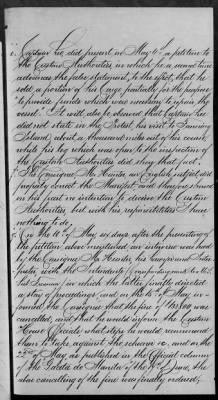 Captain Lee did present on May 10th a petition to
the Custom Authorities in which he a second time
advances the false statement, to the effect, that he
sold a portion of his Cargo partially for the purpose
to provide funds which was necessary to repair the
vessel. It will also be observed that Captain Lee
did not state in the Protest his visit to Fanning
Island, about a thousand miles out of his course,
while his log which was open to the inspection of
the Custom Authorities did show that fact.
The Consignee Mr. Hunter an English subject did
properly correct the Manifest and there was shown
on his part no intention to deceive the Custom
Authorities but with his responsibilities I have
nothing to do.
On the 16th of May six days after the presenting of
the petition above mentioned an interview was had
by the Consignee Mr. Hunter, the
with the Intendente
in which the latter finally directed
a stay of proceedings and on the of May in-
formed the Consignee that the fine of was
cancelled, and that he would inform the Custom
House Officials what steps he would recommend
them to take against the
22nd of May, as published in the Official column
of the Gaceta de Manila of the of June, the
also cancelling of the fine was finally ordered,